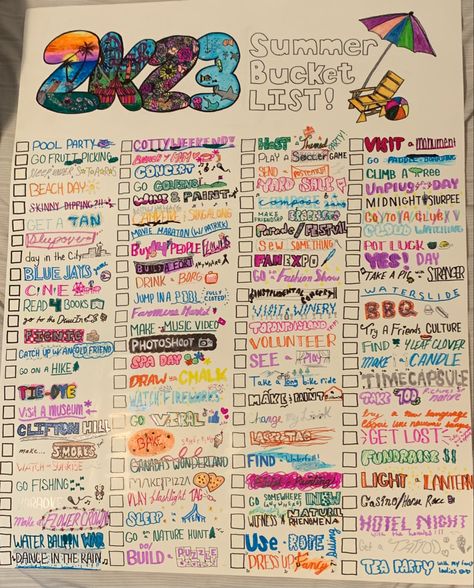 2K23
Summer
Bucket
LIST!
POOL PARTY
GO FRUIT PICKING
SLEEP UNDER
BEACH DAY
SKINNY DIPPING
GET A TAN
Sleepover
day in the City
BLUE JAYS
CINE
READ 4 BOOKS
go to the
PICNIC
CATCH UP w/ AN OLD FRIEND
GO ON A HIKE
TIE-DYE
VISIT A MUSEUM
CLIFTON HILL
make... SMORES
WATCH SUNRISE
GO FISHING
KARAOKE
Make a FLOWER CROWN
WATER BALLOON WAR
DANCE IN THE RAIN
COTTYWEEKEND
CONCERT
GO GOLFING
WINE & PAINT
CAMPFIRE SINGALONG
MOVIE MARATHON
BUY 4 PEOPLE FLOWERS
BUILD A FORT
DRINK BORG
JUMP IN A POOL FULLY CLOTHED!
Farmers Market
MAKE A MUSIC VIDEO
PHOTOSHOOT
SPA DAY
DRAW CHALK
WATCH FIREWORKS
GO VIRAL
BAKE
CANADA'S WONDERLAND
MAKE PIZZA
PLAY flashlight TAG
SLEEP IN
GO ON A NATURE HUNT
DO/BUILD A PUZZLE
HOST A Themed PARTY!
PLAY A Soccer GAME
SEND A POSTCARD
YARD SALE
Compose
MAKE FRIENDSHIP BRACELETS
Parade/FESTIVAL
SEW SOMETHING
FAN EXPO
GO Fashion Show
VISIT A WINERY
TORONTO ISLAND
VOLUNTEER
SEE a Play
Take a long bike ride
MAKE PAINT
change my Look
LASER TAG
FIND A Waterfall
Painting
GO SOMEWHERE NEW
WITNESS A NATURAL PHENOMENA
USE A ROPE Swing
DRESS UP Fancy
VISIT a monument
GO PADDLE-BOARDING
CLIMB A TREE
UNPLUG DAY
MIDNIGHT SLURPEE
GO TO YA/CLUB XV
CLOUD WATCHING
POT LUCK
YES! DAY
TAKE A PIC with a STRANGER
WATERSLIDE
BBQ
Try A Friends CULTURE
FIND A 4 LEAF CLOVER
MAKE A CANDLE
TIME CAPSULE
TAKE 10 nature
try a new language
GET LOST
FUNDRAISE $$
LIGHT A LANTERN
Casino/Horse Race
HOTEL NIGHT
Get a TATTOO
TEA PARTY with my